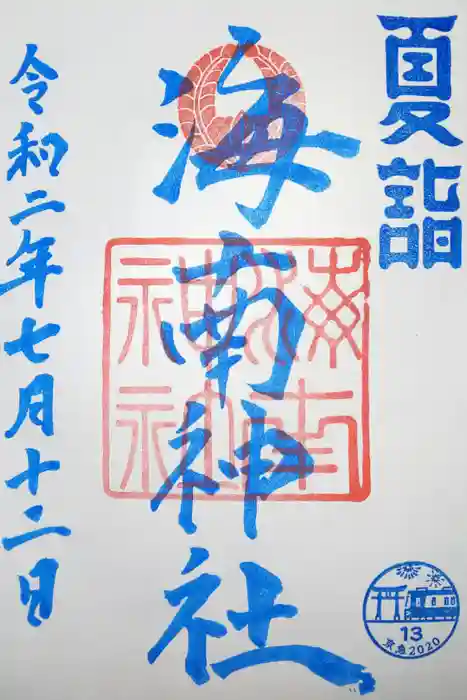 夏詣
海南神社
令和二年七月十二日
13
京急2020